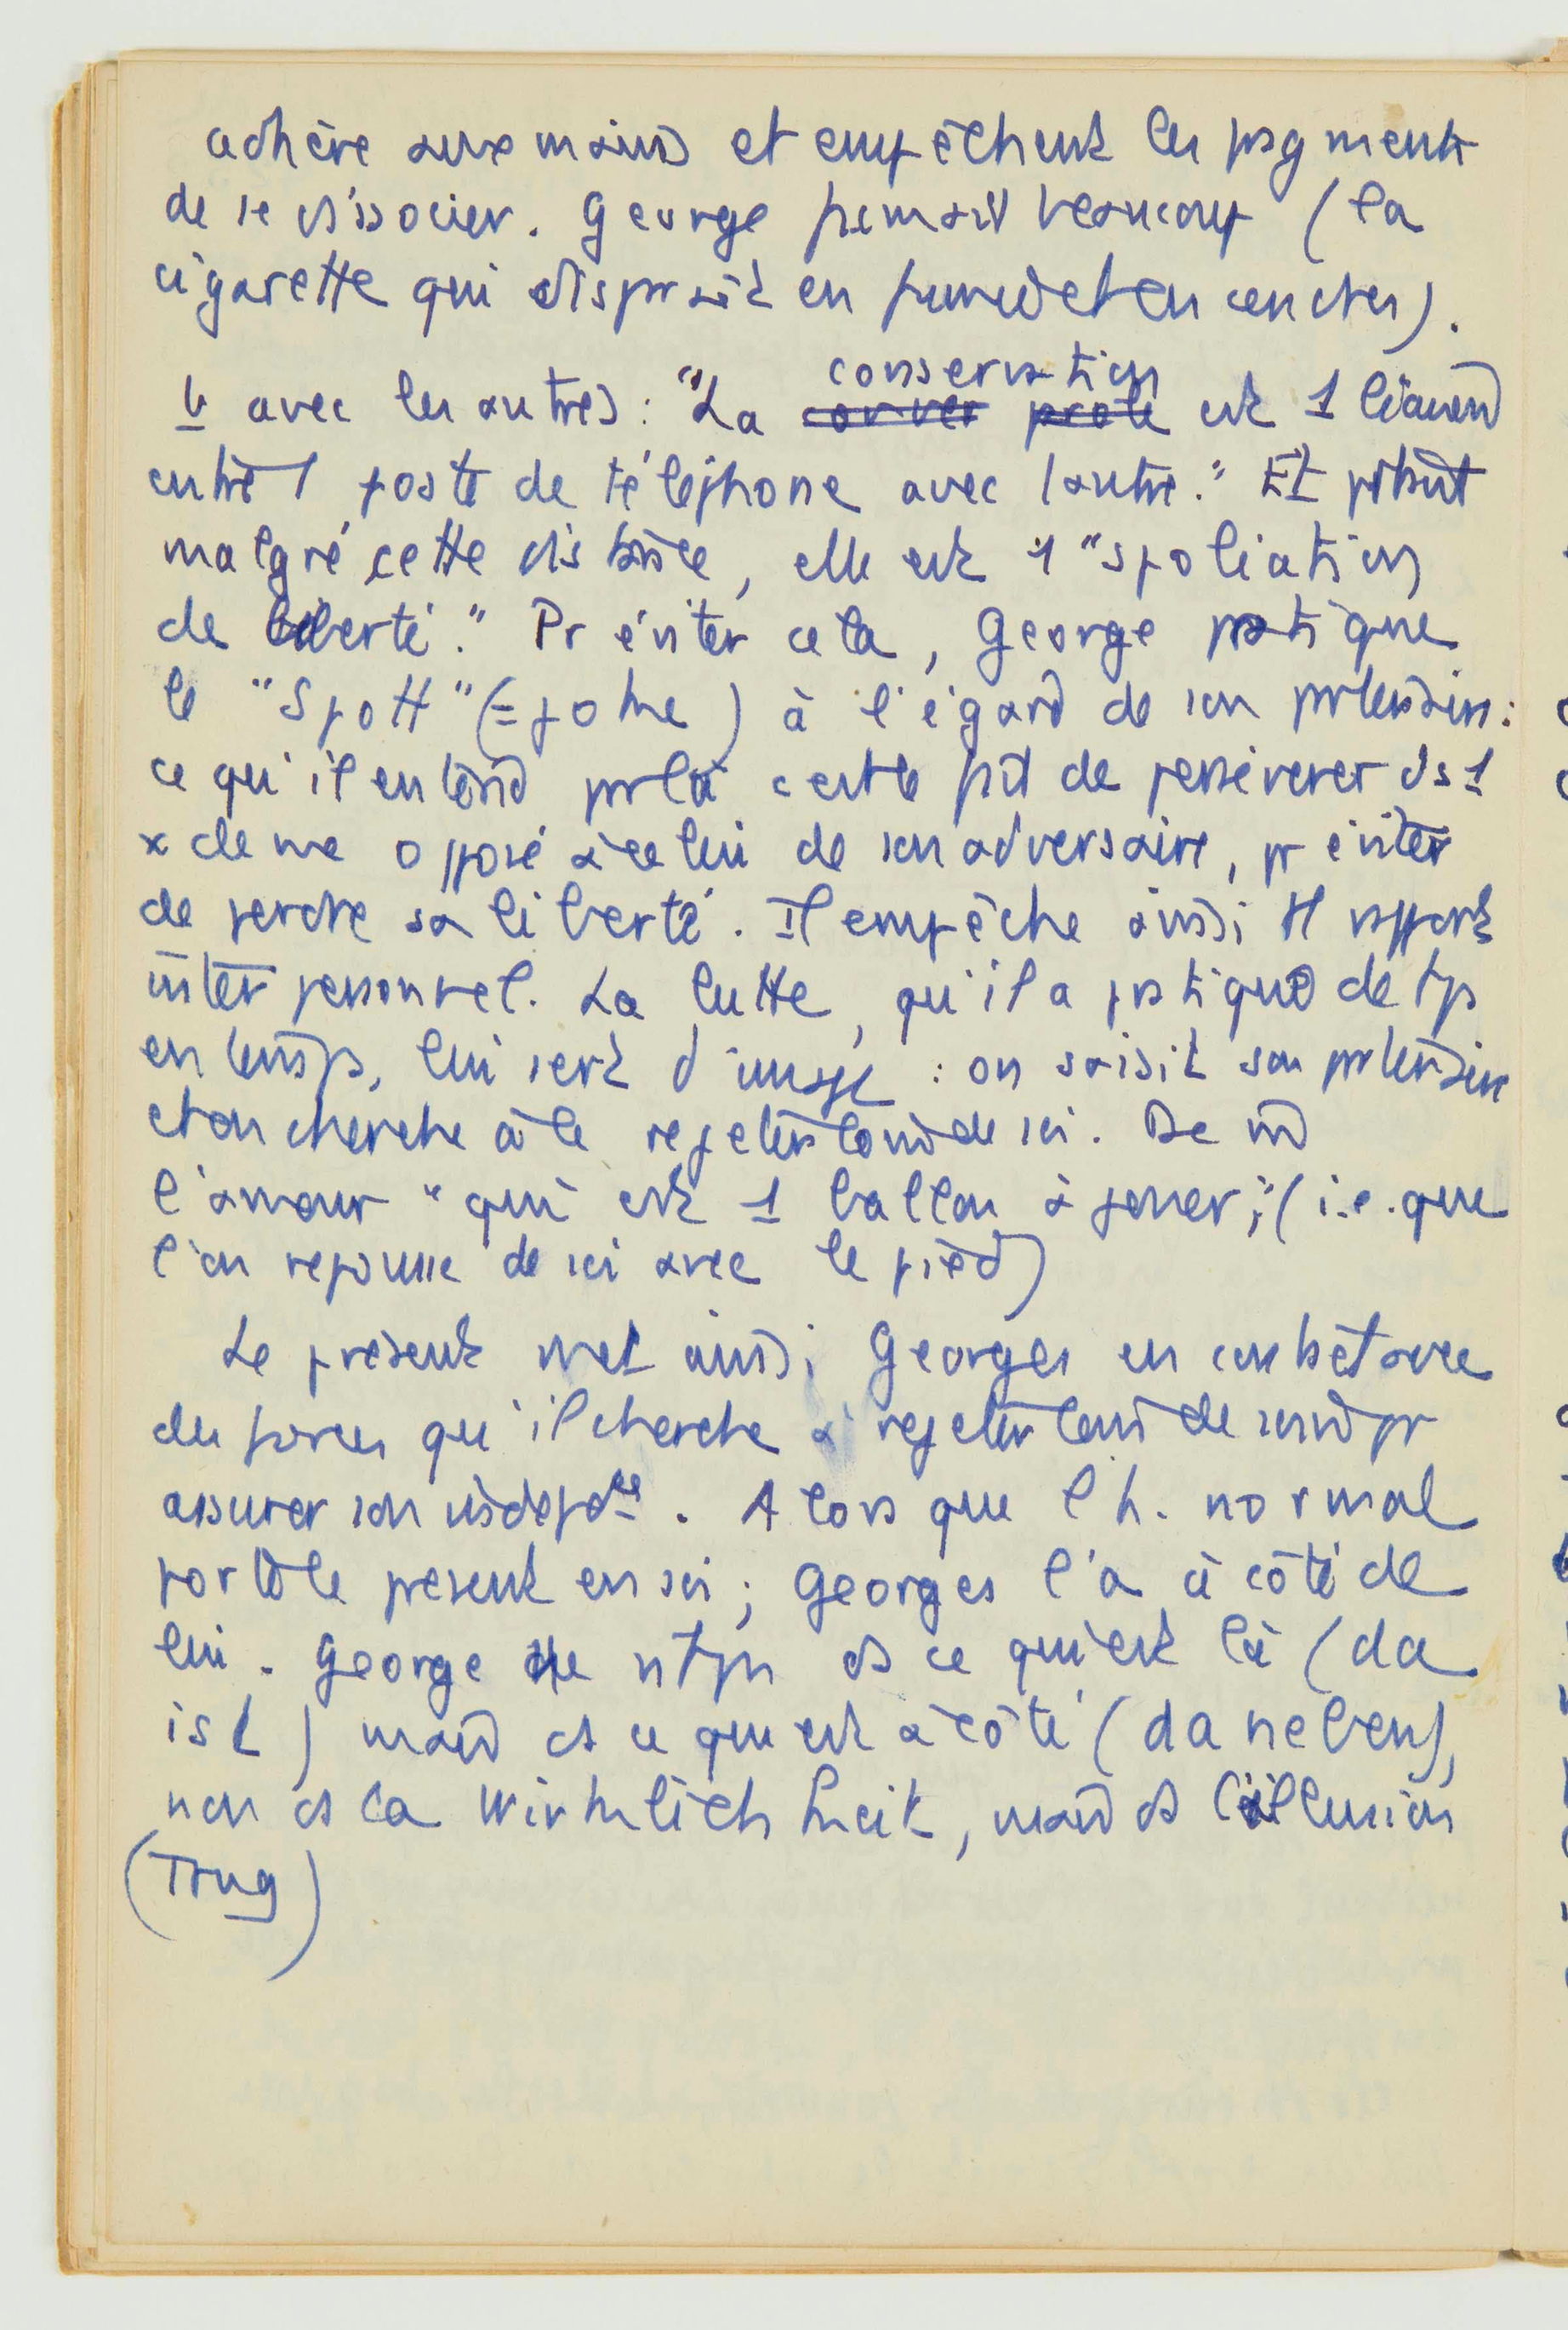 adhère aux mains et empêchent les fragments
de se dissocier. George fumait beaucoup (la
cigarette qui disparaît en fumée et en cendres).
b avec les autres : "La conver parole conservation est 1 liaison
entre 1 poste de téléphone avec l'autre." Et prtant
malgré cette distance, elle est 1 "spoliation
de liberté." Pr éviter cela, George pratique
le "Spott" (= ) à l'égard de son partenaire :
ce qu'il entend par là c'est le fait de persévérer ds 1
x de me opposé à celui de son adversaire, pr éviter
de perdre sa liberté. Il empêche ainsi tt rapport
inter personnel. La lutte, qu'il a pratiqué de tps
en temps, lui sert d'image : on saisit son partenaire
et on cherche à le rejeter loin de soi. De m̂
l'amour "qui est 1 ballon à jouer", (i.e. que
l'on repousse de soi avec le pied)
Le présent met ainsi Georges en contact avec
des forces qu'il cherche à rejeter loin de pr
assurer son indépdce. Alors que l'h. normal
porte le présent en soi ; Georges l'a à côté de
lui. George ne vit pas ds ce qui est là (da
ist) mais ds ce qui est à côté (daneben),
non ds la Wirklichkeit, mais ds l'illusion
(Trug)